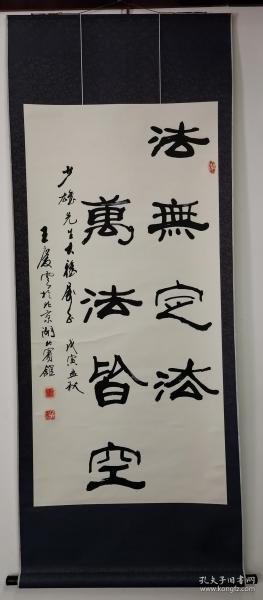 法無定法
萬法皆空
少雄先生大雅屬正 戊寅孟秋
王慶雲於北京湖北賓館
孔夫子旧书网
www.kongfz.com